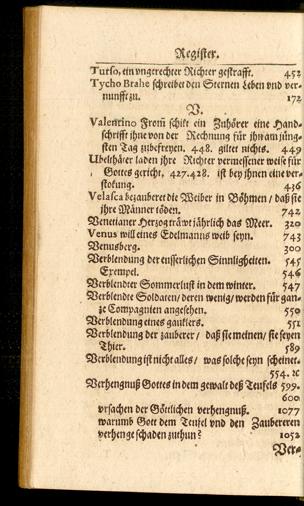 Register.
Turso, ein vngerechter Richter gestrafft. 452
Tycho Brahe schreibet den Sternen Leben vnd ver-
nunfft zu. 172
V.
Valentino From schikt ein Zuhörer eine Hand-
schrifft ihne von der Rechnung für ihm am jüng-
sten Tag zubefreyen. 448. giltet nichts. 449
Ubelthäter laden ihre Richter vermessener weise für
Gottes gericht, 427.428. ist bey ihnen eine ver-
stokung. 436
Velasca bezauberet die Weiber in Böhmen / daß sie
ihre Männer töden. 742
Venetianer Hertzog träwt jährlich das Meer. 320
Venus will eines Edelmanns weib seyn. 743
Venusberg. 300
Verblendung der eusserlichen Sinnligheiten. 545
Exempel. 546
Verblendter Sommerlust in dem winter. 547
Verblendte Soldaten / deren wenig / werden für gan-
ze Compagnien angesehen. 550
Verblendung eines gauklers. 551
Verblendung der zauberer / daß sie meinen / sie seyen
Thier. 589
Verblendung ist nicht alles / was solche seyn scheinet.
554. ꝛc
Verhengnuß Gottes in dem gewalt deß Teufels 599.
600
vrsachen der Göttlichen verhengnuß. 1077
warumb Gott dem Teufel vnd den Zaubereren
verhenge schaden zuthun? 1052
Ver-